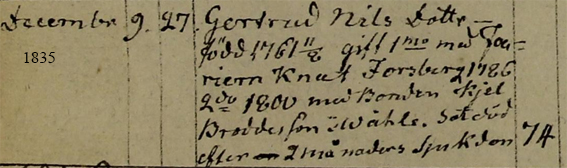 December 9. 27. Gertrud Nils Dotter
född 1761 11/8 gift 1mo med
1835
riern Knut Forsberg 1786
2do 1800 med Bonden Kjel
Broddesson i Wåhle.
efter 2 månaders sjukdom 74